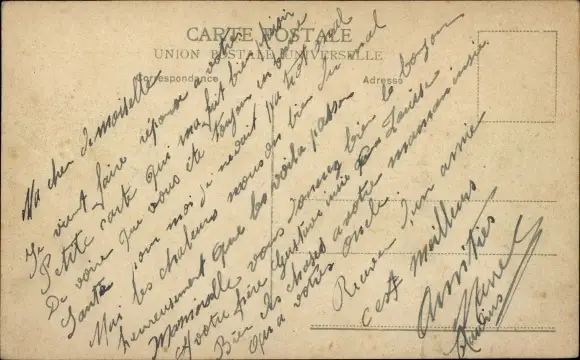 CARTE POSTALE
UNION POSTALE UNIVERSELLE
Correspondance
Adresse
Ma cher demoiselle
Je vient faire réponse a votre
Petite carte qui ma fait bien plaisir
De voire que vous ete toujour en bonne
Santé pour moi je ne vait pas trop mal
Mai les chaleurs nous on bien du mal
heureusement que les voila passon
Mamoiselle vous donneré bien le bonjour
a votre frère Gustins Louise
Bien des choses a notre
qui a votres oncle
Recever d'un amie
cest meilleurs
Amities